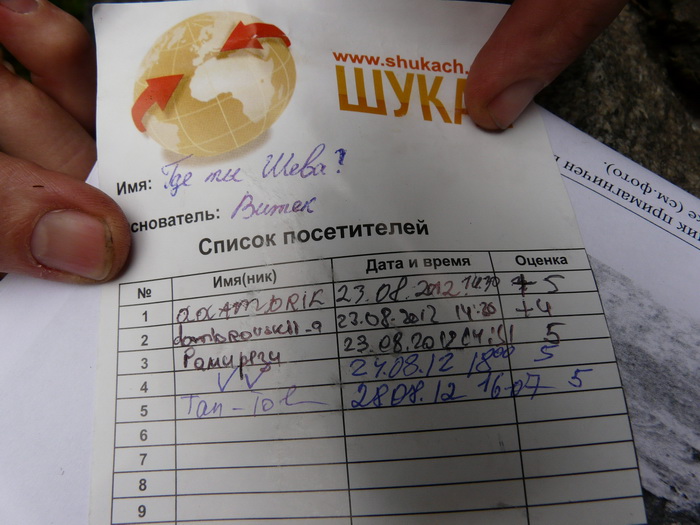 www.shukach.
ШУКА
Имя: Где ты Шева?
снователь: Витек
Список посетителей
№ Имя(ник) Дата и время Оценка
1 23.08.2012 14:30 5
2 23.08.2012 14:30 +4
3 Рамирези 23.08.2012 14:31 5
4 VV 27.08.12 18:00 5
5 Tan-Tol 28.08.12 16-07 5
6
7
8
9
ик примагничен
е (см.фото).